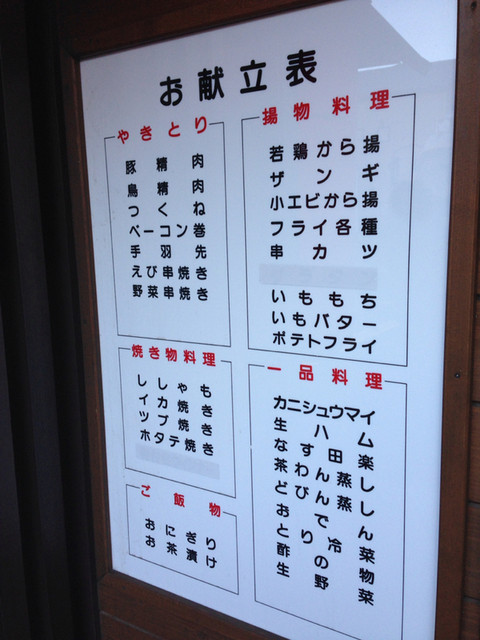 お献立表
やきとり
豚精肉
鳥精肉
つくね
ベーコン巻
手羽先
えび串焼き
野菜串焼き
焼き物料理
ししゃも
イカ焼き
ツブ焼き
ホタテ焼き
ご飯物
おにぎり
お茶漬け
揚物料理
若鶏から揚
ザンギ
小エビから揚
フライ各種
串カツ
いももち
いもバター
ポテトフライ
一品料理
カニシュウマイ
生ハム
なす田楽
茶わん蒸し
どびん蒸し
おでん
とり冷菜
酢の物
生野菜